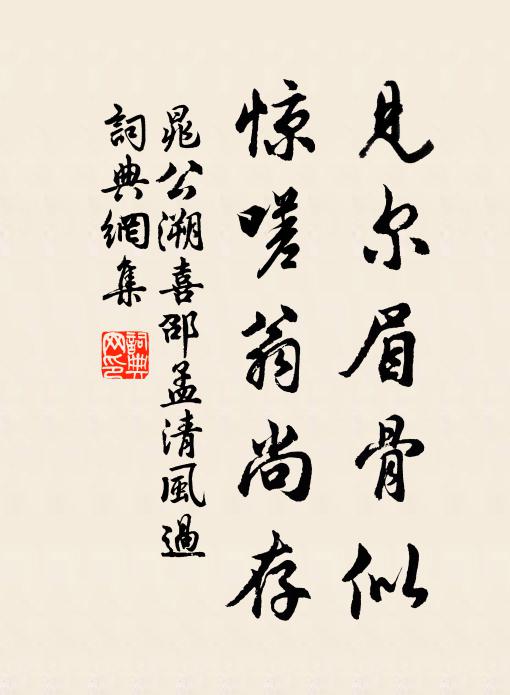 见尔眉骨似
惊嗟翁尚存
晁公溯喜邵孟清風過
詞典網集
詞典网印